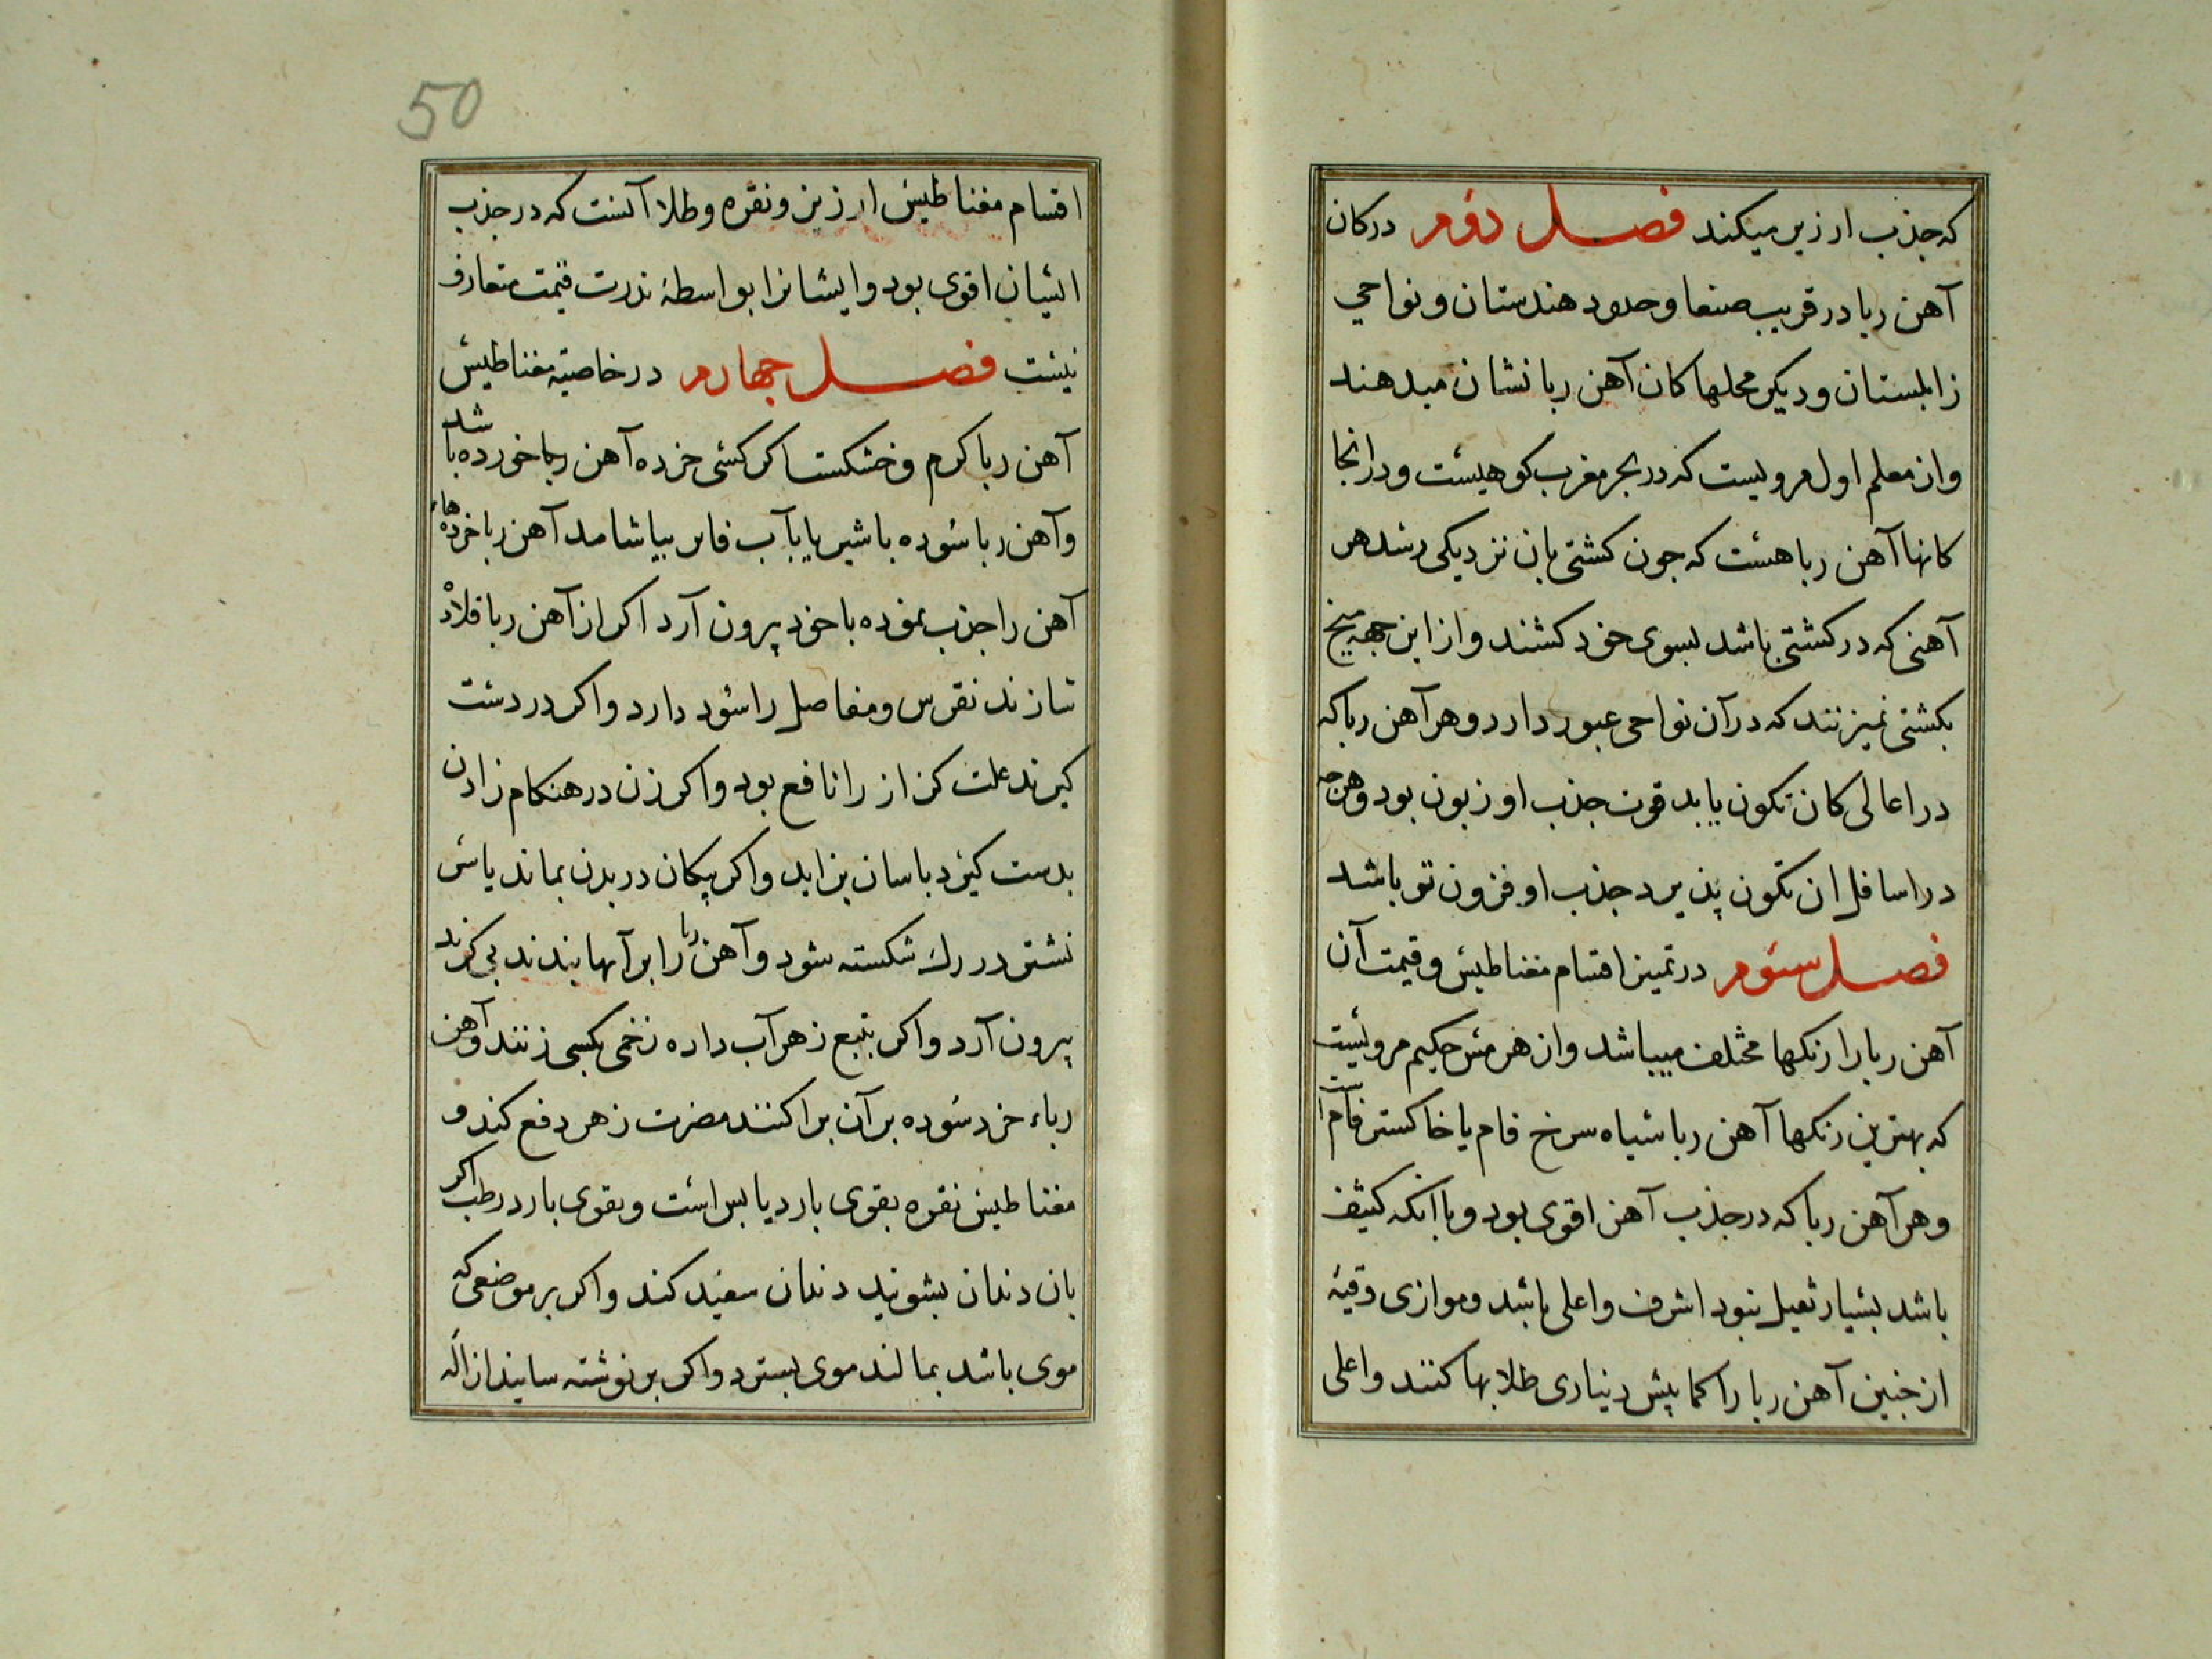 که جذب ارزیر میکند فصل دوم در کان
آهن ربا در قریب صنعا و حدود هندستان و نواحی
زابلستان و دیکر محلها کان آهن ربا نشان میدهند
و از معلم اول مرویست که در بحر مغرب کوهیست و درانجا
کانها آهن ربا هست که جون کشتی بان نزدیکی رسد هر
آهنی که در کشتی باشد بسوی خود کشند و از این جهه میخ
بکشتی نمیزنند که در آن نواحی عبور دارد و هر آهن ربا که
در اعالی کان تکون یابد قوت جذب او زبون بود و هرجه
در اسافل ان تکون پذیرد جذب او فزون تر باشد
فصل سوم در تمیز اقسام مغناطیس و قیمت آن
آهن ربا را رنکها مختلف میباشد و از هرمس حکیم مرویست
که بهترین رنکها آهن ربا سیاه سرخ فام یا خاکستر فام است
و هر آهن ربا که در جذب آهن اقوی بود و با آنکه کثیف
باشد بسیار ثقیل نبود اشرف و اعلی باشد و موازی وقیه
از جنین آهن ربا را کمابیش دیناری طلا بها کنند و اعلی
50
اقسام مغناطیس ارزیز و نقره و طلا آنست که در جذب
ایشان اقوی بود و ایشانرا بواسطهٔ ندرت قیمت متعارف
نیست فصل جهارم در خاصیة مغناطیس
آهن ربا کرم و خشکست اکر کسی خرده آهن ربا خورده باشد
و آهن ربا سوده با شیر یا بآب فاتر بیاشامد آهن ربا خردهاء
آهن را جذب نموده با خود بیرون آرد اکر از آهن ربا قلاده
سازند نقرس و مفاصل را سود دارد و اکر در دست
کیرند علت کزاز را نافع بود و اکر زن در هنکام زادن
بدست کیرد باسان بزاید و اکر پیکان در بدن بماند یا سر
نشتر در رک شکسته شود و آهن ربا را بر آنها بندند بی کزند
بیرون آرد و اکر بتیغ زهر آب داده زخمی بکسی زنند و آهن
رباء خرد سوده بر آن براکنند مضرت زهر دفع کند و
مغناطیس نقره بقوی بارد یابس است و بقوی بارد رطب اکر
بان دندان بشویند دندان سفید کند و اکر بر موضعی که
موی باشد بمالند موی بسترد و اکر بر نوشته سایند ازاله